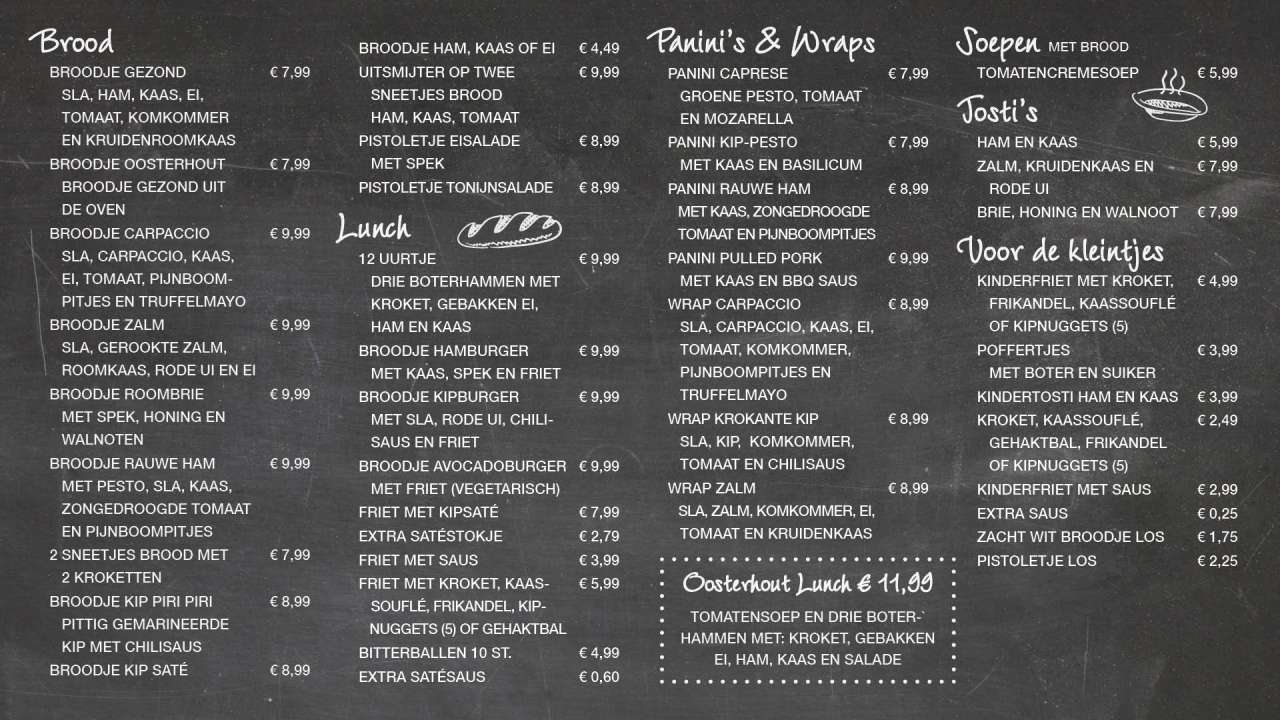 Brood
BROODJE GEZOND € 7,99
SLA, HAM, KAAS, EI,
TOMAAT, KOMKOMMER
EN KRUIDENROOMKAAS
BROODJE OOSTERHOUT € 7,99
BROODJE GEZOND UIT
DE OVEN
BROODJE CARPACCIO € 9,99
SLA, CARPACCIO, KAAS,
EI, TOMAAT, PIJNBOOM-
PITJES EN TRUFFELMAYO
BROODJE ZALM € 9,99
SLA, GEROOKTE ZALM,
ROOMKAAS, RODE UI EN EI
BROODJE ROOMBRIE € 9,99
MET SPEK, HONING EN
WALNOTEN
BROODJE RAUWE HAM € 9,99
MET PESTO, SLA, KAAS,
ZONGEDROOGDE TOMAAT
EN PIJNBOOMPITJES
2 SNEETJES BROOD MET € 7,99
2 KROKETTEN
BROODJE KIP PIRI PIRI € 8,99
PITTIG GEMARINEERDE
KIP MET CHILISAUS
BROODJE KIP SATÉ € 8,99
BROODJE HAM, KAAS OF EI € 4,49
UITSMIJTER OP TWEE € 9,99
SNEETJES BROOD
HAM, KAAS, TOMAAT
PISTOLETJE EISALADE € 8,99
MET SPEK
PISTOLETJE TONIJNSALADE € 8,99
Lunch
12 UURTJE € 9,99
DRIE BOTERHAMMEN MET
KROKET, GEBAKKEN EI,
HAM EN KAAS
BROODJE HAMBURGER € 9,99
MET KAAS, SPEK EN FRIET
BROODJE KIPBURGER € 9,99
MET SLA, RODE UI, CHILI-
SAUS EN FRIET
BROODJE AVOCADOBURGER € 9,99
MET FRIET (VEGETARISCH)
FRIET MET KIPSATÉ € 7,99
EXTRA SATÉSTOKJE € 2,79
FRIET MET SAUS € 3,99
FRIET MET KROKET, KAAS- € 5,99
SOUFLÉ, FRIKANDEL, KIP-
NUGGETS (5) OF GEHAKTBAL
BITTERBALLEN 10 ST. € 4,99
EXTRA SATÉSAUS € 0,60
Panini's & Wraps
PANINI CAPRESE € 7,99
GROENE PESTO, TOMAAT
EN MOZARELLA
PANINI KIP-PESTO € 7,99
MET KAAS EN BASILICUM
PANINI RAUWE HAM € 8,99
MET KAAS, ZONGEDROOGDE
TOMAAT EN PIJNBOOMPITJES
PANINI PULLED PORK € 9,99
MET KAAS EN BBQ SAUS
WRAP CARPACCIO € 8,99
SLA, CARPACCIO, KAAS, EI,
TOMAAT, KOMKOMMER,
PIJNBOOMPITJES EN
TRUFFELMAYO
WRAP KROKANTE KIP € 8,99
SLA, KIP, KOMKOMMER,
TOMAAT EN CHILISAUS
WRAP ZALM € 8,99
SLA, ZALM, KOMKOMMER, EI,
TOMAAT EN KRUIDENKAAS
Oosterhout Lunch € 11,99
TOMATENSOEP EN DRIE BOTER-`
HAMMEN MET: KROKET, GEBAKKEN
EI, HAM, KAAS EN SALADE
Soepen MET BROOD
TOMATENCREMESOEP € 5,99
Tosti's
HAM EN KAAS € 5,99
ZALM, KRUIDENKAAS EN € 7,99
RODE UI
BRIE, HONING EN WALNOOT € 7,99
Voor de kleintjes
KINDERFRIET MET KROKET, € 4,99
FRIKANDEL, KAASSOUFLÉ
OF KIPNUGGETS (5)
POFFERTJES € 3,99
MET BOTER EN SUIKER
KINDERTOSTI HAM EN KAAS € 3,99
KROKET, KAASSOUFLÉ, € 2,49
GEHAKTBAL, FRIKANDEL
OF KIPNUGGETS (5)
KINDERFRIET MET SAUS € 2,99
EXTRA SAUS € 0,25
ZACHT WIT BROODJE LOS € 1,75
PISTOLETJE LOS € 2,25